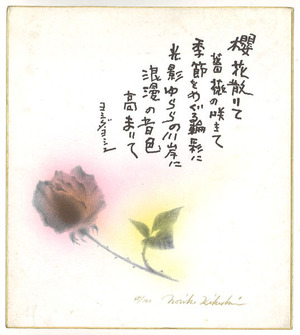 櫻花散りて
薔薇の咲きて
季節をめぐる輪影に
光影ゆららの川岸に
浪漫の音色
高まりて
ヨシダヨシエ